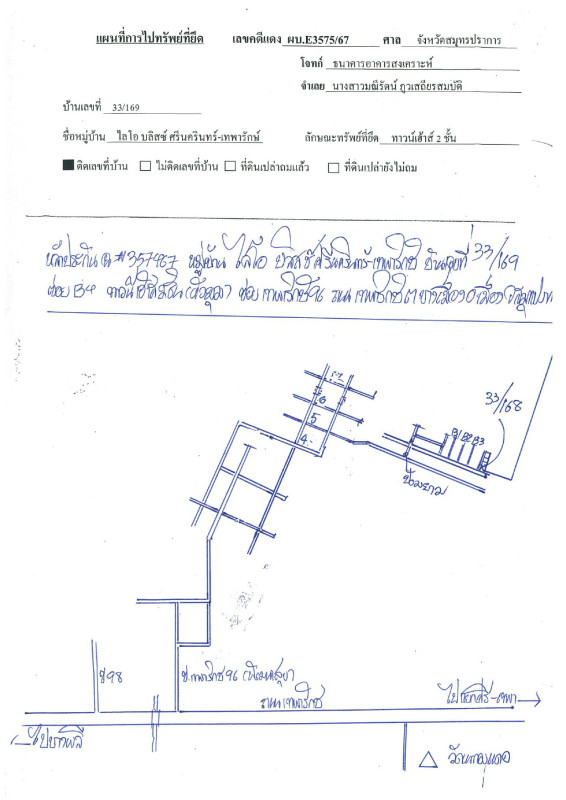 แผนที่การไปทรัพย์ที่ยึด เลขคดีแดง ผบ.E3575/67 ศาล จังหวัดสมุทรปราการ
โจทก์ ธนาคารอาคารสงเคราะห์
จำเลย นางสาวมณีรัตน์ ภูวเสถียรสมบัติ
บ้านเลขที่ 33/169
ชื่อหมู่บ้าน ไลโอ บลิสซ์ ศรีนครินทร์-เทพารักษ์ ลักษณะทรัพย์ที่ยึด ทาวน์เฮ้าส์ 2 ชั้น
ติดเลขที่บ้าน ไม่ติดเลขที่บ้าน ที่ดินเปล่าถมแล้ว ที่ดินเปล่ายังไม่ถม
#357467 หมู่บ้าน ไลโอ บลิสซ์ ศรีนครินทร์-เทพารักษ์ บ้านเลขที่ 33/169
ซอย B4 ซอย เทพารักษ์ 96 ถนน เทพารักษ์
7
6
5
4
33/168
B1 B2 B3
ป้อมยาม
ซ 98
ซ.เทพารักษ์ 96
ถนน เทพารักษ์
ไปแยกศรี-เทพา
ไปบางพลี